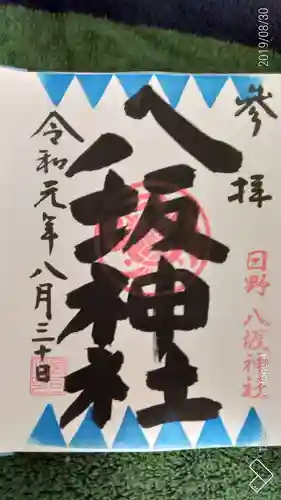 2019/08/30
参拝
日野 八坂神社
八坂神社
令和元年八月三十日